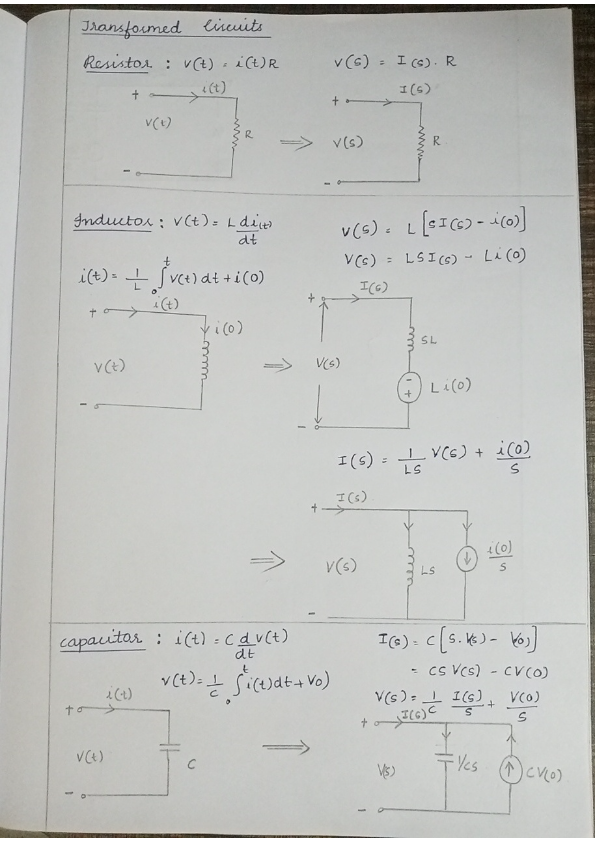 Transformed Circuits
Resistor : v(t) = i(t)R    V(s) = I(s). R
i(t)    I(s)
+    +
V(t)    R    ⇒    V(s)    R
-    -
Inductor : V(t) = L di(t)/dt    V(s) = L [SI(s) - i(0)]
V(s) = LSI(s) - Li(0)
i(t) = 1/L ∫₀ᵗ v(t) dt + i(0)
i(t)    I(s)
+    i(0)    +
SL
V(t)    ⇒    V(s)
- +    L i(0)
-    -
I(s) = 1/LS V(s) + i(0)/S
I(s)
+
⇒    V(s)    LS    i(0)/S
-
capacitor : i(t) = C d/dt v(t)    I(s) = C [S. V(s) - V(0)]
= CS V(s) - CV(0)
v(t) = 1/C ∫₀ᵗ i(t)dt + V0)
V(s) = 1/C I(s)/S + V(0)/S
i(t)    I(s)
+    +
V(t)    C    ⇒    V(s)    1/CS    CV(0)
-    -